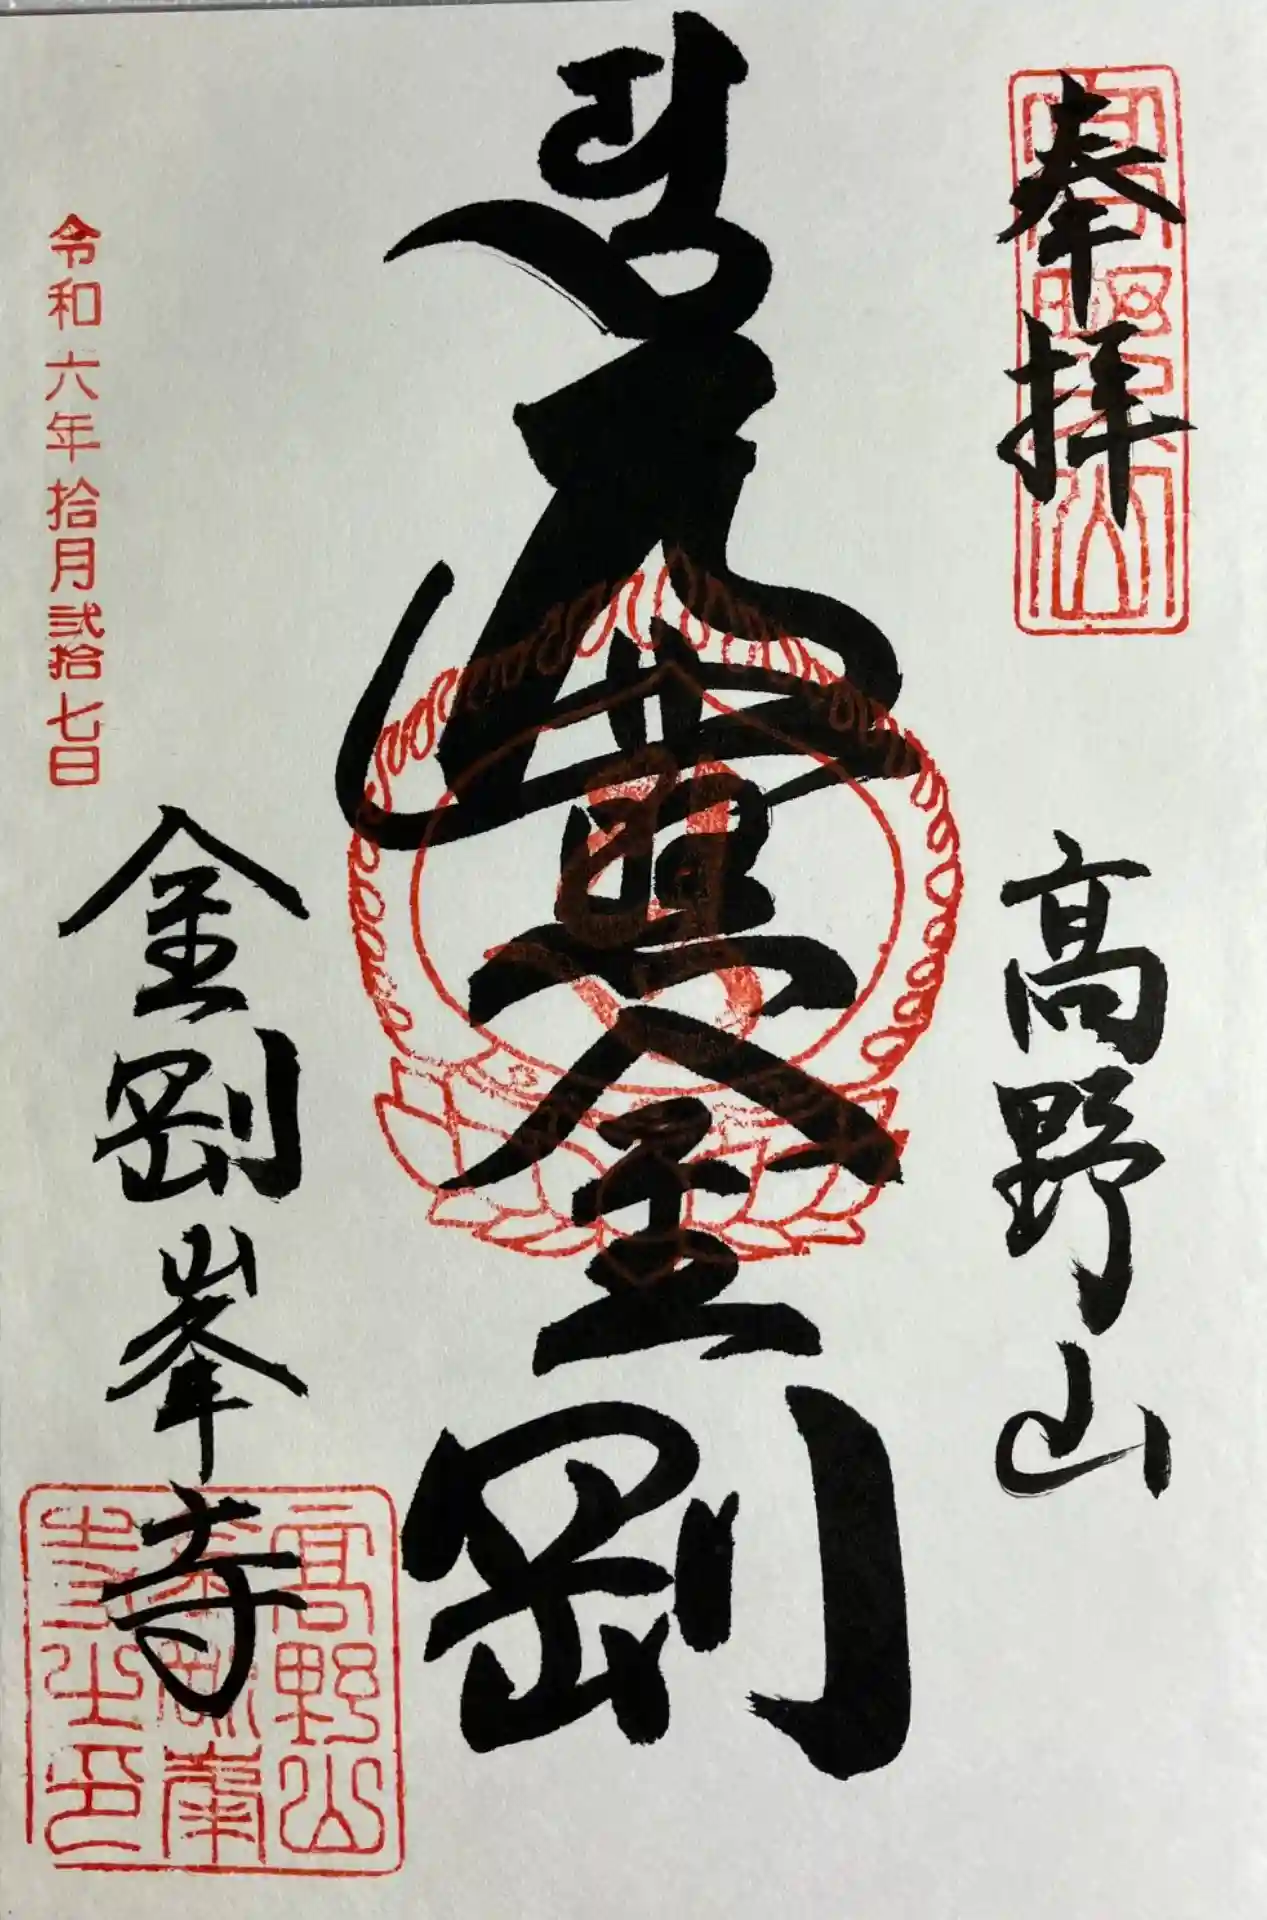 奉拝
高野山
遍照金剛
金剛峯寺
令和六年拾月弐拾七日
高野山
金剛峯
寺之印